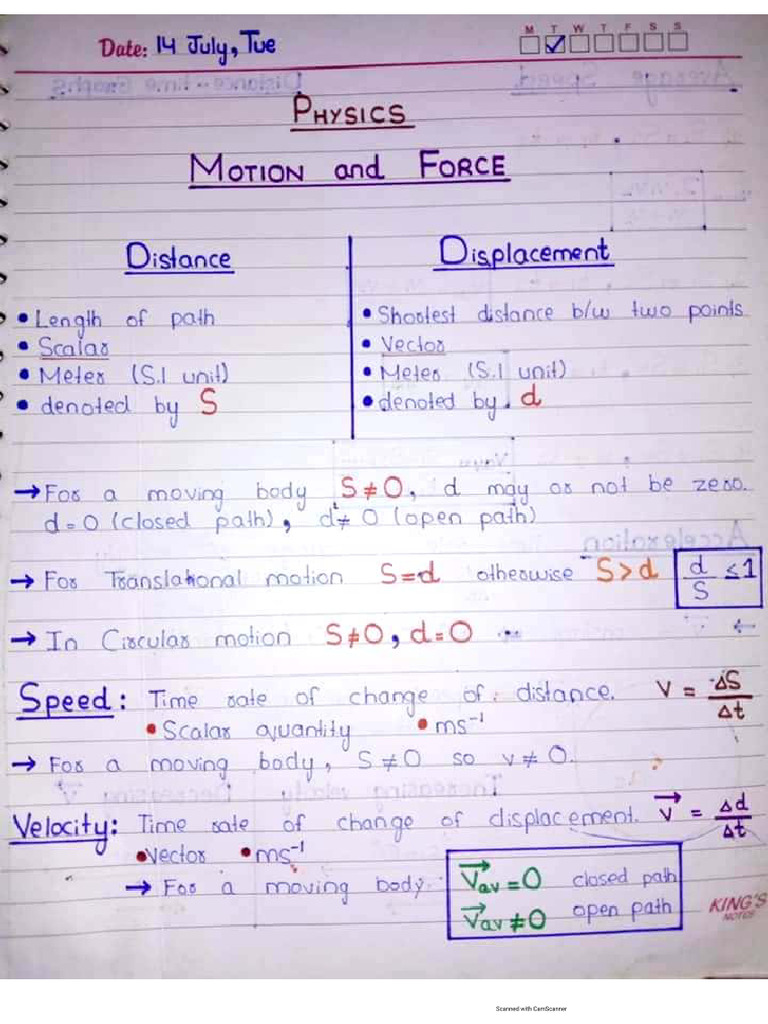 M T W T F S S
Date: 14 July, Tue
PHYSICS
MOTION and FORCE
Distance
• Length of path
• Scalar
• Meter (S.I unit)
• denoted by S
Displacement
• Shortest distance b/w two points
• Vector
• Meter (S.I unit)
• denoted by d
→ For a moving body S ≠ 0, d may or not be zero.
d = 0 (closed path), d ≠ 0 (open path)
→ For Translational motion S = d otherwise S > d d/S ≤ 1
→ In Circular motion S ≠ 0, d = 0
Speed: Time rate of change of distance. V = ΔS/Δt
• Scalar quantity • ms⁻¹
→ For a moving body, S ≠ 0 so v ≠ 0.
Velocity: Time rate of change of displacement. V⃗ = Δd/Δt
• Vector • ms⁻¹
→ For a moving body V⃗av = 0 closed path
V⃗av ≠ 0 open path
KING'S
NOTES
Scanned with CamScanner